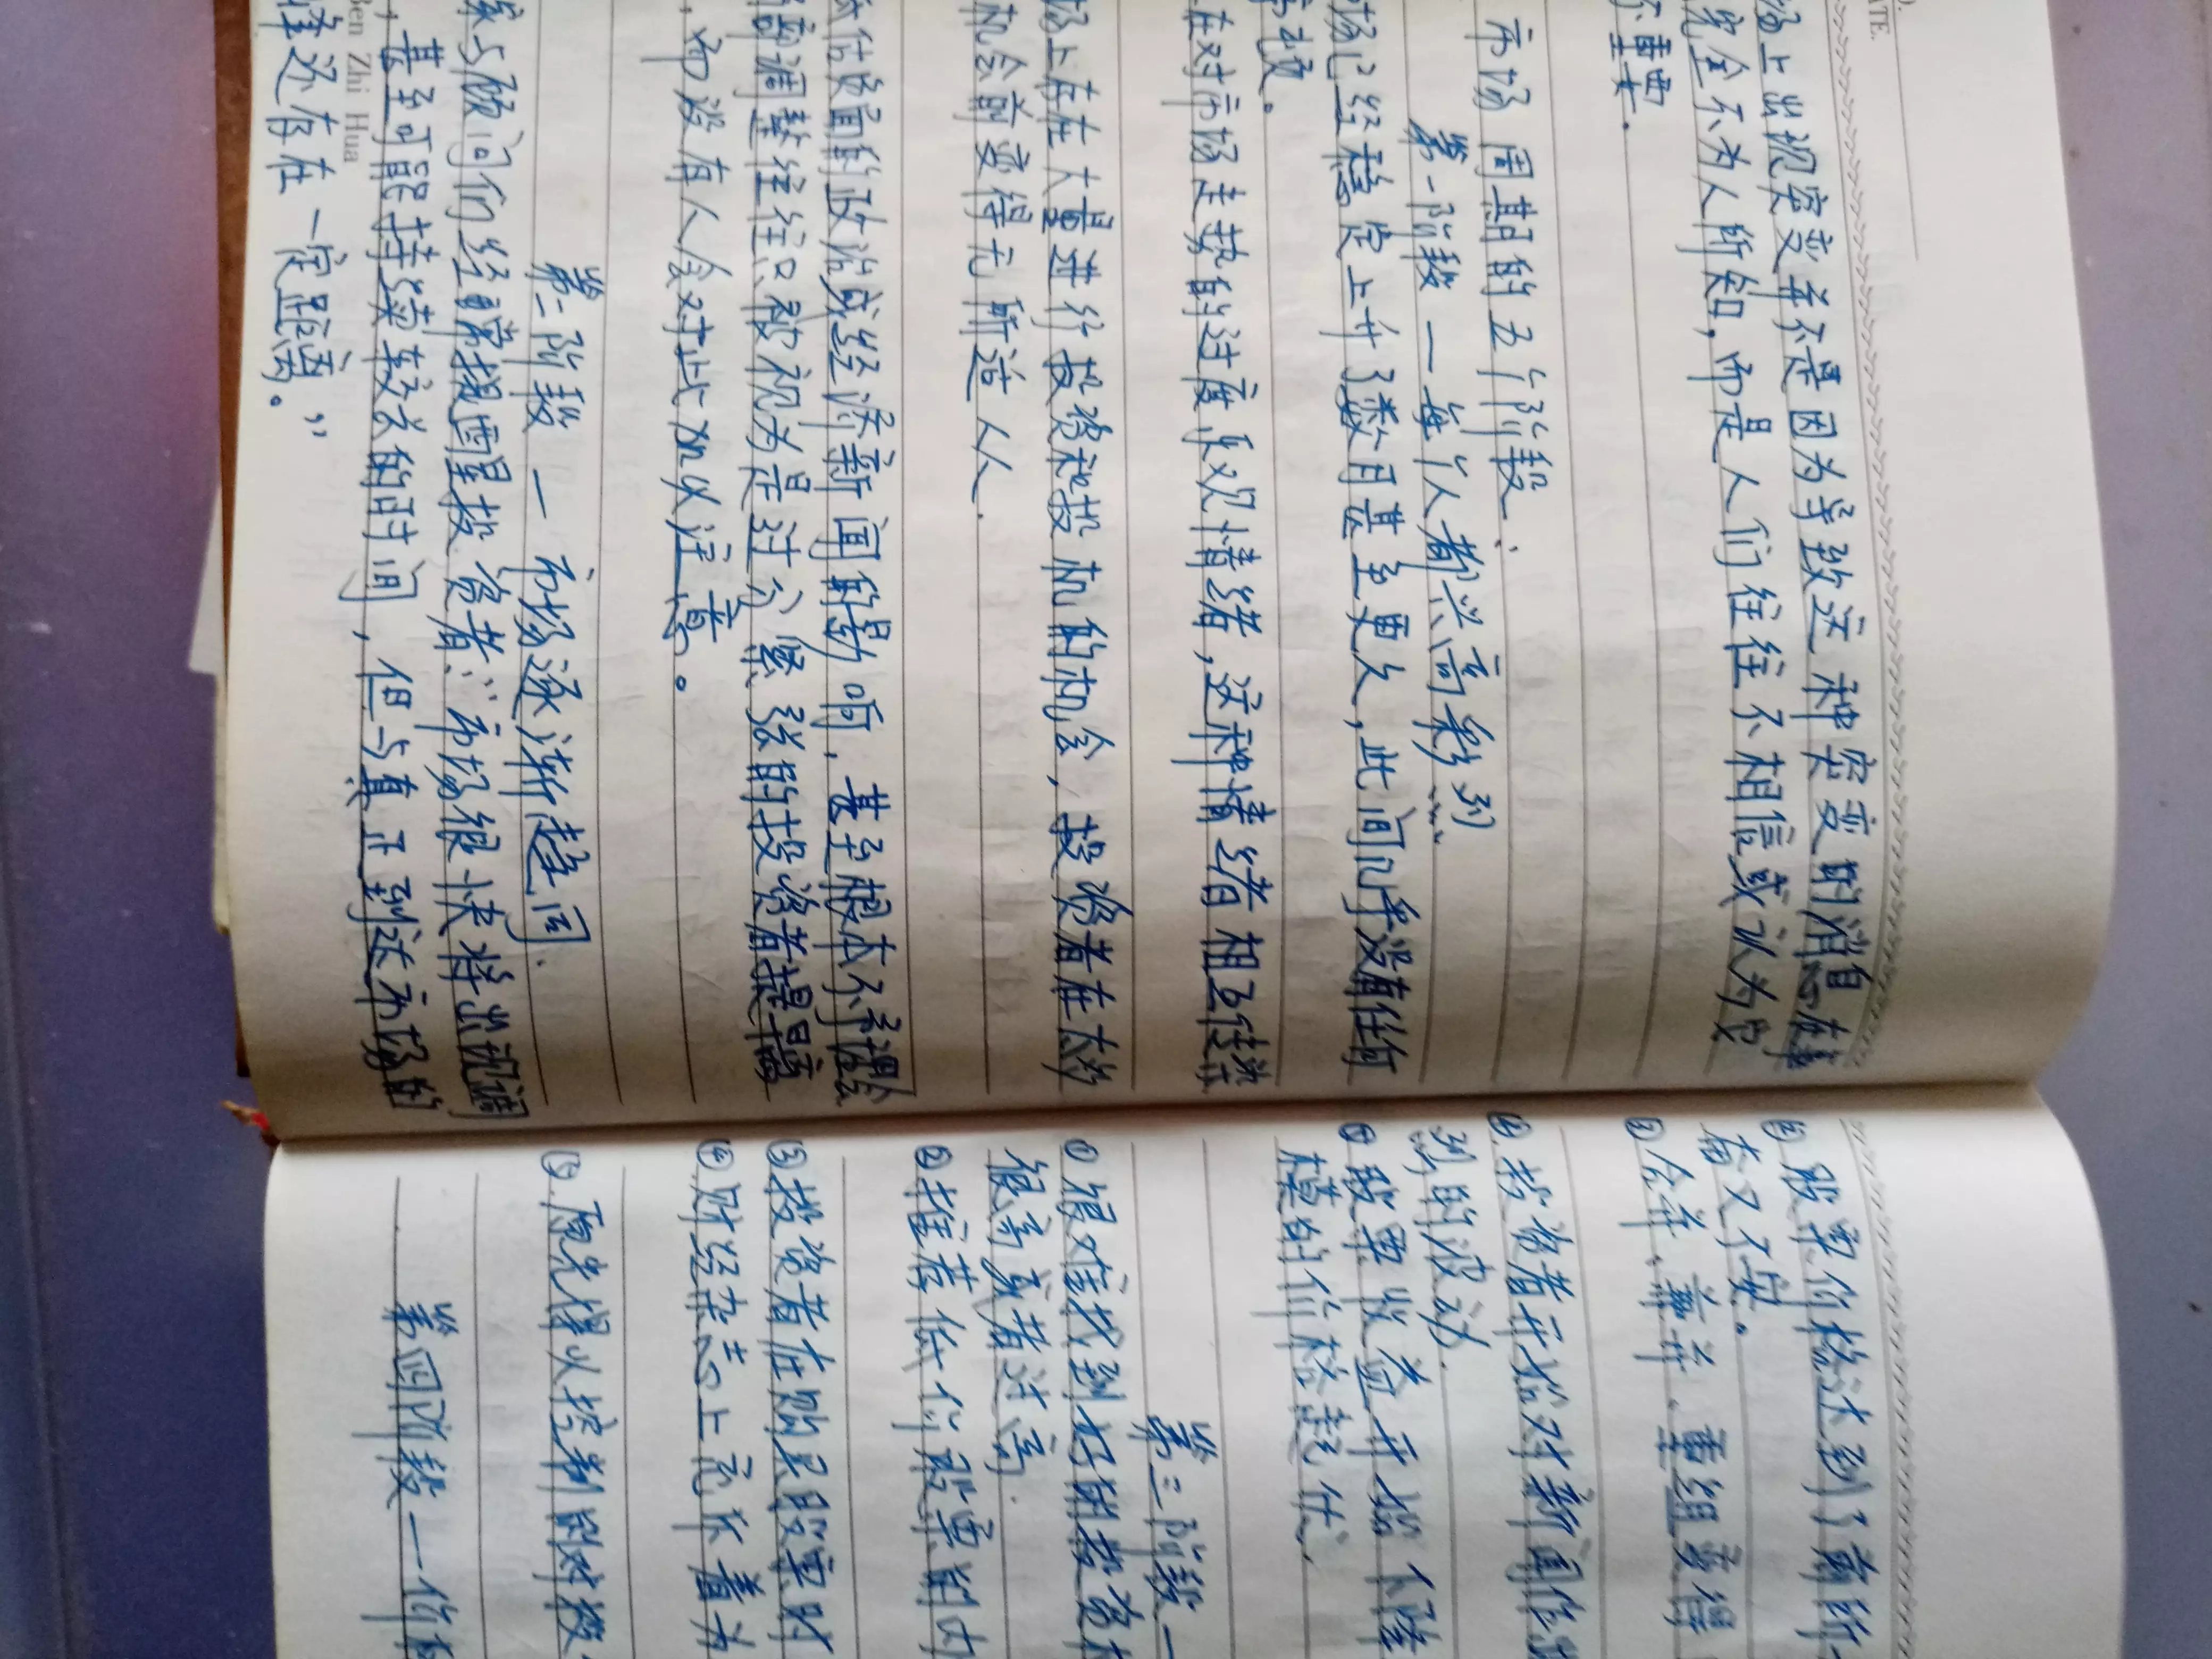 ATE.
场上出现突变并不是因为导致这种突变的消息在事
完全不为人所知，而是人们往往不相信或认为它
不重要．
市场周期的五个阶段：
第一阶段一每个人都兴高彩烈
场已经稳定上升了数月甚至更久，此间几乎没有任何
在对市场走势的过度乐观情绪，这种情绪相互传染
场上存在大量进行投资和投机的机会，投资者在大的
机会前变得无所适人．
估负面的政治或经济新闻的影响，甚至根本不
调整往往只被视为是过分紧张的投资者提
，而没有人会对此加以注意。
第二阶段一市场逐渐趋向．
家与顾问们经常提醒投资者：“市场很快将出现调
，甚至可能持续较长的时间，但与真正到达市场的
峰还存在一定距离。”
Ben Zhi Hua
股票价格达到了前所
奋又不安。
③合并、兼并、重组变得
④.投资者开始对新闻作出
烈的波动．
⑤股票收益开始下降
模的价格走低、
第三阶段一
①很难找到好的投资机
很高或者过高．
②推荐低价股票的内
③投资者在购买股票时
④财经杂志上充斥着为
⑤.原先得以控制的财政
第四阶段一价格